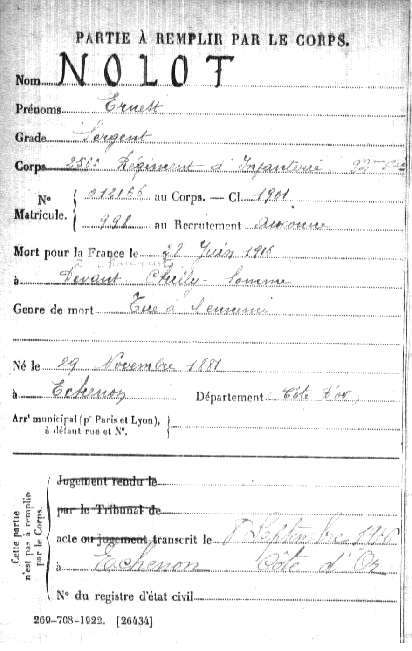 PARTIE À REMPLIR PAR LE CORPS.
Nom NOLOT
Prénoms Ernest
Grade Sergent
Corps 256e Régiment d'Infanterie
N° Matricule. 212166 au Corps. — Cl. 1901
998 au Recrutement Auxonne
Mort pour la France le 28 Juin 1916
à Devant Chuilly Somme
Genre de mort Tué à l'ennemi
Né le 29 Novembre 1881
à Echenon Département Côte d'Or
Arrt municipal (pr Paris et Lyon),
à défaut rue et N°.
Cette partie n'est pas à remplir par le Corps.
Jugement rendu le
par le Tribunal de
acte ou jugement transcrit le 8 Septembre 1916
à Echenon Côte d'Or
N° du registre d'état civil
269-708-1922. [26434]